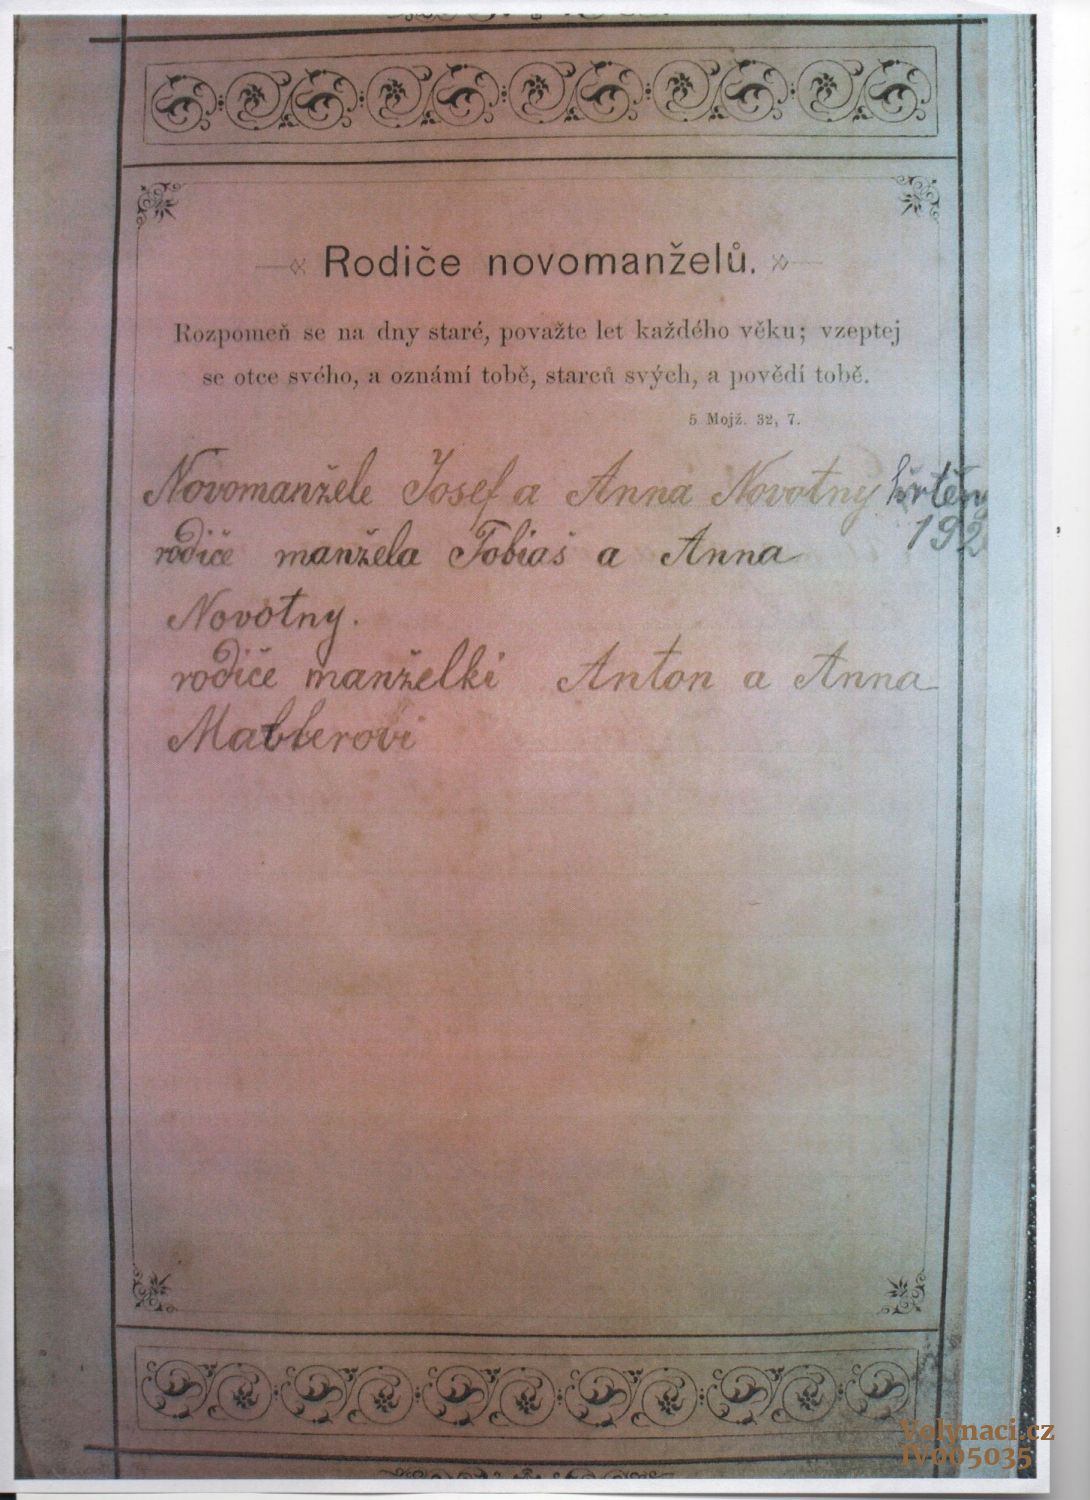 Rodiče novomanželů.
Rozpomeň se na dny staré, považte let každého věku; vzeptej
se otce svého, a oznámí tobě, starců svých, a povědí tobě.
5 Mojž. 32, 7.
Novomanžele Josef a Anna Novotny
192
rodiče manžela Tobiaš a Anna
Novotny.
rodiče manželki Anton a Anna
Volynaci.cz
IV005035